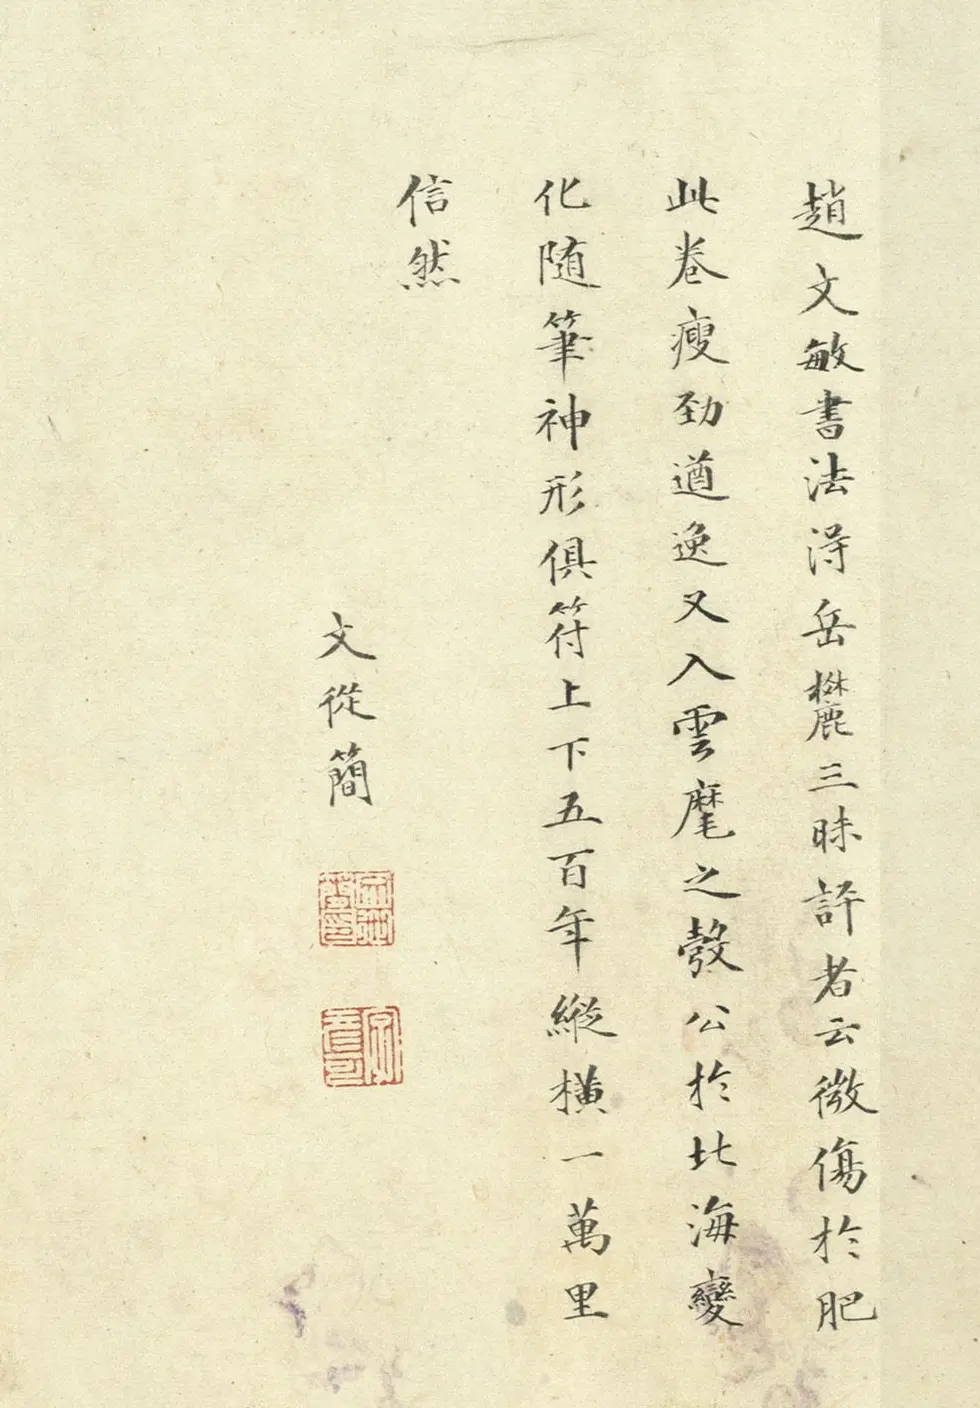 趙文敏書法得岳麓三昧評者云微傷於肥
此卷瘦劲遒逸又入雲麾之彀公於北海變
化随筆神形俱符上下五百年縱橫一萬里
信然
文從簡